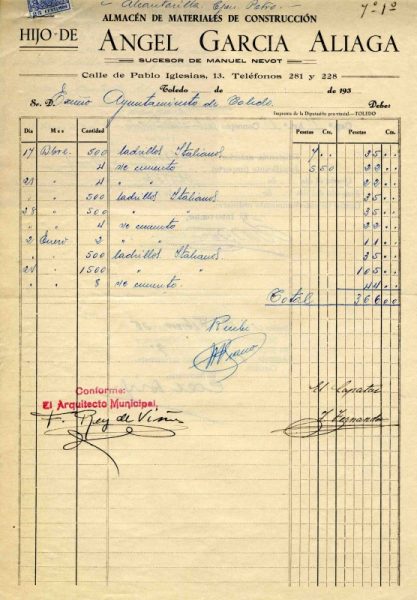 Alcantarilla
7º 1º
ALMACÉN DE MATERIALES DE CONSTRUCCIÓN
HIJO DE ANGEL GARCIA ALIAGA
SUCESOR DE MANUEL NEVOT
Calle de Pablo Iglesias, 13. Teléfonos 281 y 228
Toledo de de 193
Sr. D. Excmo Ayuntamiento de Toledo Debe:
Imprenta de la Diputación provincial.—TOLEDO
Día Mes Cantidad Pesetas Cts. Pesetas Cts.
17 Dbre. 500 ladrillos Italianos 7 35
4 sc cemento 5 50 22
21 4 " " 22
500 ladrillos Italianos 35
28 500 " " 35
4 sc cemento 22
2 Enero 2 " " 11
500 ladrillos Italianos 35
1500 " " 105
8 sc cemento 44
Total 366 00
Recibí
Conforme:
El Arquitecto Municipal,
El Capataz
F. Rey de Viñas
J Fernandez